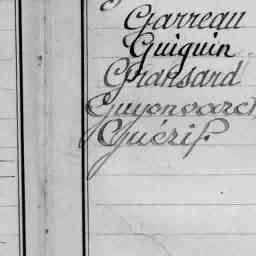 Garreau
Guiguin
Gransard
Guyonvarch
Guérif